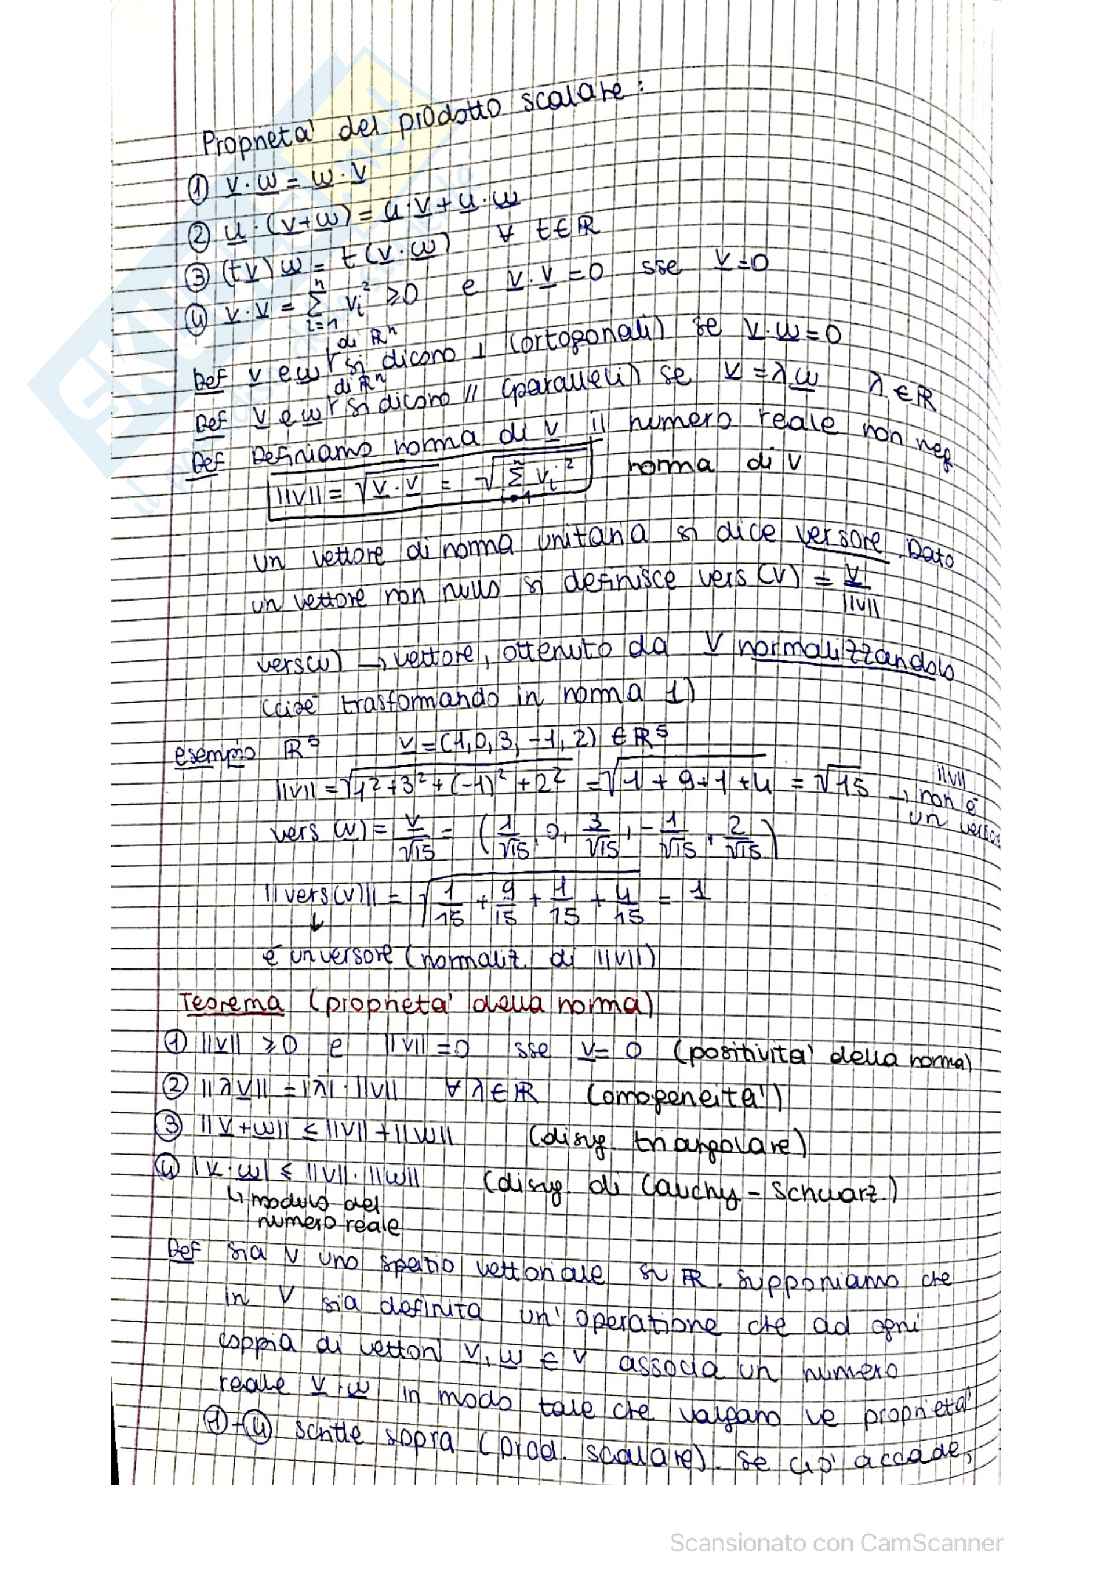 Proprietà del prodotto scalare:
① v·w = w·v
② u·(v+w) = u·v + u·w
③ (tv)w = t(v·w) ∀ t∈ℝ
④ v·v = Σ_{i=1}^{n} vᵢ² ≥0 e v·v=0 sse v=0
di ℝⁿ
Def v e w si dicono ⊥ (ortogonali) se v·w=0
di ℝⁿ
Def v e w si dicono // (paralleli) se v=λw λ∈ℝ
Def Definiamo norma di v il numero reale non neg
||v|| = √(v·v) = √(Σ_{i=1}^{n} vᵢ²) norma di v
un vettore di norma unitaria si dice versore. Dato
un vettore non nullo si definisce vers(v) = v/||v||
vers(v) → vettore, ottenuto da v normalizzandolo
(cioè trasformando in norma 1)
esempio ℝ⁵ v=(1,0,3,-1,2) ∈ℝ⁵
||v|| = √(1²+3²+(-1)²+2²) = √(1+9+1+4) = √15 → ||v|| non è un versore
vers(v) = v/√15 = (1/√15, 0, 3/√15, -1/√15, 2/√15)
||vers(v)|| = √(1/15 + 9/15 + 1/15 + 4/15) = 1
↓
è un versore (normaliz. di ||v||)
Teorema (proprietà della norma)
① ||v|| ≥0 e ||v||=0 sse v=0 (positività della norma)
② ||λv|| = |λ|·||v|| ∀λ∈ℝ (omogeneità)
③ ||v+w|| ≤ ||v||+||w|| (disug. triangolare)
④ |v·w| ≤ ||v||·||w|| (disug di Cauchy-Schwarz)
↳ modulo del
numero reale
Def sia V uno spazio vettoriale su ℝ. supponiamo che
in V sia definita un'operazione che ad ogni
coppia di vettori v, w ∈ V associa un numero
reale v·w in modo tale che valgano le proprietà
①-④ scritte sopra (prod. scalare). Se ciò accade,
Scansionato con CamScanner